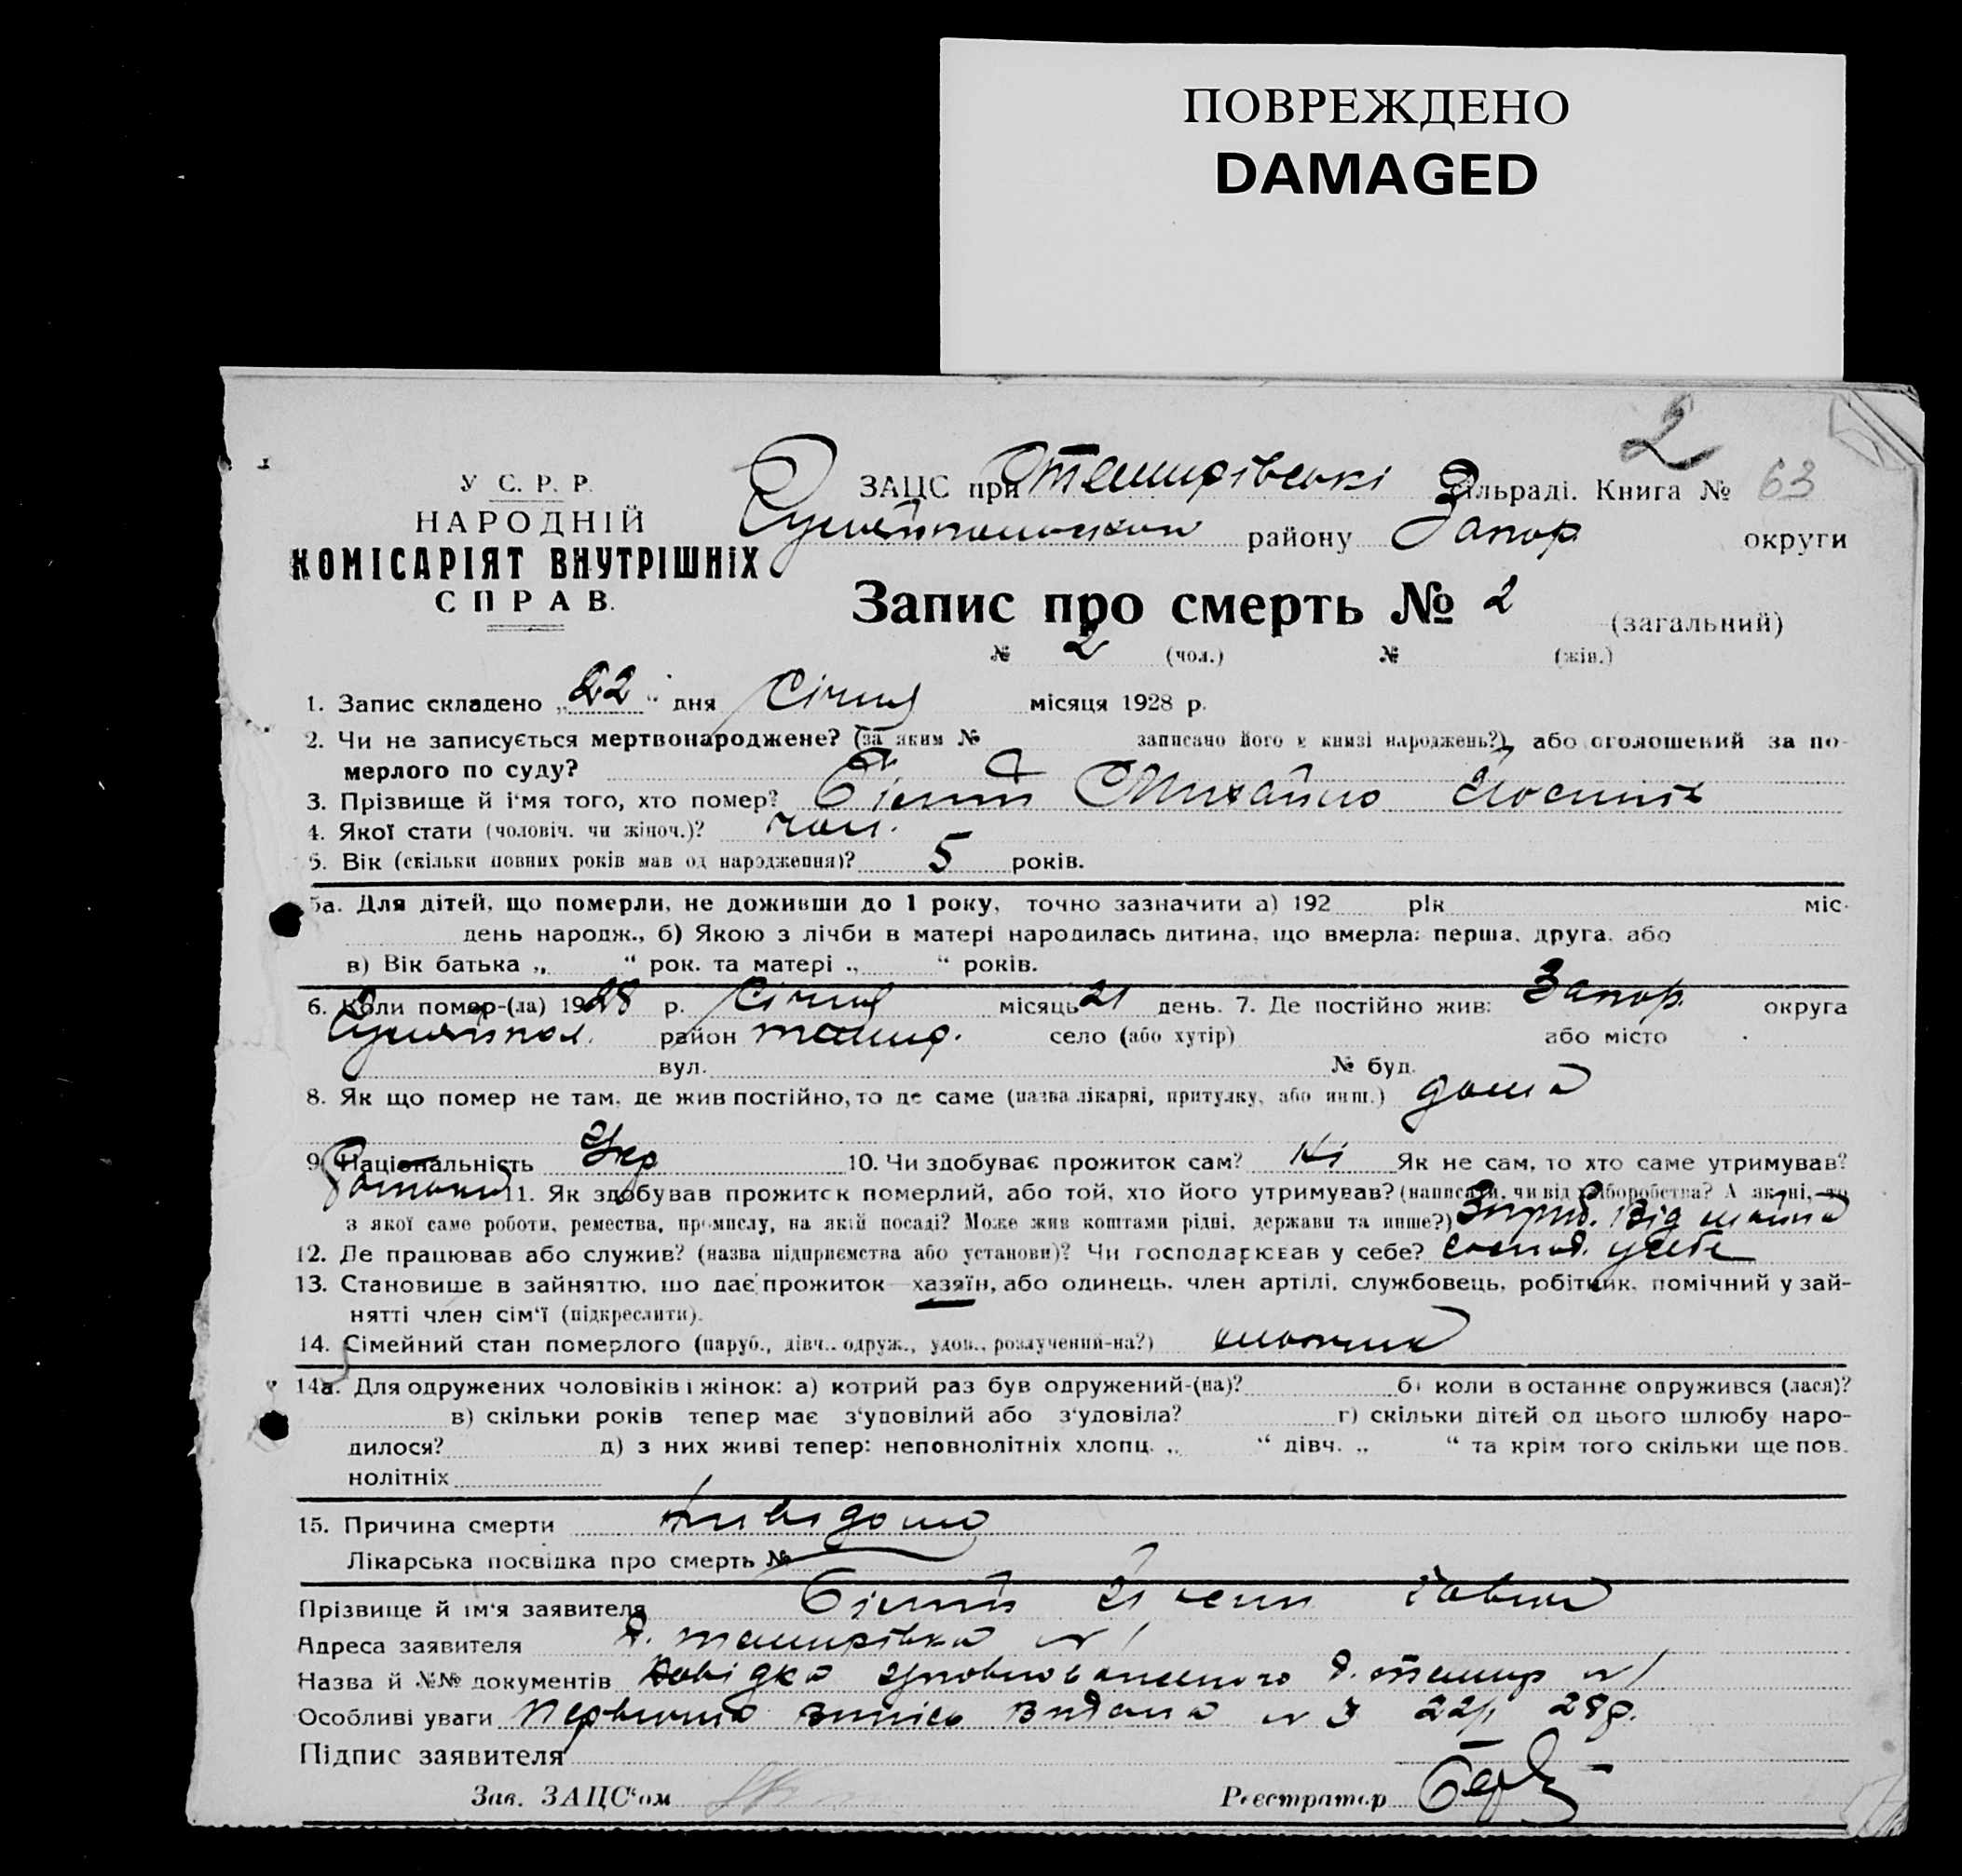 ПОВРЕЖДЕНО
DAMAGED
2
У С. Р. Р.
НАРОДНІЙ
КОМІСАРІЯТ ВНУТРІШНІХ
СПРАВ.
ЗАЦС при Темирівські Сільраді. Книга № 63
району Запор. округи
Запис про смерть № 2 (загальний)
№ 2 (чол.) № (жін.)
1. Запис складено „22“ дня Січня місяця 1928 р.
2. Чи не записується мертвонароджене? (за яким № записано його в книзі народжень?), або оголошений за по-
мерлого по суду?
3. Прізвище й і‘мя того, хто помер? Білий Михайло
4. Якої стати (чоловіч. чи жіноч.)? чол.
5. Вік (скільки повних років мав од народження)? 5 років.
5а. Для дітей, що померли, не доживши до 1 року, точно зазначити а) 192 рік міс.
день народж., б) Якою з лічби в матері народилась дитина, що вмерла: перша, друга, або
в) Вік батька „ “ рок. та матері „ “ років.
6. Коли помер-(ла) 1928 р. Січня місяць 21 день. 7. Де постійно жив: Запор. округа
Гуляйпол. район темир. село (або хутір) або місто
вул. № буд.
8. Як що помер не там, де жив постійно, то де саме (назва лікарні, притулку, або инш.) дома
9. Національність Укр 10. Чи здобуває прожиток сам? Ні Як не сам, то хто саме утримував?
11. Як здобував прожиток померлий, або той, хто його утримував? (написати, чи від хліборобства? А як ні, то
з якої саме роботи, ремества, промислу, на якій посаді? Може жив коштами рідні, держави та инше?)
12. Де працював або служив? (назва підприємства або установи)? Чи господарював у себе? господ. у себе
13. Становище в зайняттю, що дає прожиток—хазяїн, або одинець, член артілі, службовець, робітник, помічний у зай-
нятті член сім‘ї (підкреслити).
14. Сімейний стан померлого (паруб., дівч., одруж., удов., розлучений-на?) хлопчик
14а. Для одружених чоловіків і жінок: а) котрий раз був одружений-(на)? б) коли в останнє одружився (лася)?
в) скільки років тепер має з‘удовілий або з‘удовіла? г) скільки дітей од цього шлюбу наро-
дилося? д) з них живі тепер: неповнолітніх хлопц. „ “ дівч. „ “ та крім того скільки ще пов.
нолітніх
15. Причина смерти Невідома
Лікарська посвідка про смерть №
Прізвище й ім‘я заявителя Білий
Адреса заявителя темирівка № 1
Назва й №№ документів Довідка уповноваженого темир № 1
Особливі уваги Первична випись видана № 3 22/1 28р.
Підпис заявителя
Зав. ЗАЦС‘ом Реєстратор